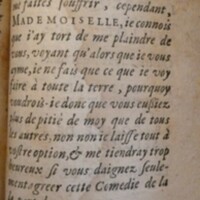 me faites souffrir, cependant,
MADEMOISELLE, ie connois
que i'ay tort de me plaindre de
vous, voyant qu'alors que ie vous
ayme, ie ne fais que ce que ie voy
faire à toute la terre, pourquoy
voudrois-ie donc que vous eussiez
plus de pitié de moy que de tous
les autres, non non ie laisse tout à
vostre option, & me tiendray trop
heureux si vous daignez seule-
ment agreer cette Comedie de la